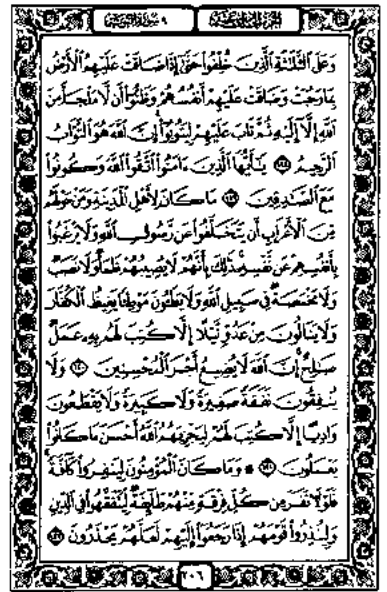 الجزء الحادي عشر ٩ سورة التوبة
وَعَلَى الثَّلَٰثَةِ الَّذِينَ خُلِّفُوا حَتَّىٰ إِذَا ضَاقَتْ عَلَيْهِمُ الْأَرْضُ
بِمَا رَحُبَتْ وَضَاقَتْ عَلَيْهِمْ أَنفُسُهُمْ وَظَنُّوا أَن لَّا مَلْجَأَ مِنَ
اللَّهِ إِلَّا إِلَيْهِ ثُمَّ تَابَ عَلَيْهِمْ لِيَتُوبُوا إِنَّ اللَّهَ هُوَ التَّوَّابُ
الرَّحِيمُ ١١٨ يَٰأَيُّهَا الَّذِينَ ءَامَنُوا اتَّقُوا اللَّهَ وَكُونُوا
مَعَ الصَّٰدِقِينَ ١١٩ مَا كَانَ لِأَهْلِ الْمَدِينَةِ وَمَنْ حَوْلَهُم
مِّنَ الْأَعْرَابِ أَن يَتَخَلَّفُوا عَن رَّسُولِ اللَّهِ وَلَا يَرْغَبُوا
بِأَنفُسِهِمْ عَن نَّفْسِهِ ذَٰلِكَ بِأَنَّهُمْ لَا يُصِيبُهُمْ ظَمَأٌ وَلَا نَصَبٌ
وَلَا مَخْمَصَةٌ فِي سَبِيلِ اللَّهِ وَلَا يَطَـُٔونَ مَوْطِئًا يَغِيظُ الْكُفَّارَ
وَلَا يَنَالُونَ مِنْ عَدُوٍّ نَّيْلًا إِلَّا كُتِبَ لَهُم بِهِ عَمَلٌ
صَٰلِحٌ إِنَّ اللَّهَ لَا يُضِيعُ أَجْرَ الْمُحْسِنِينَ ١٢٠ وَلَا
يُنفِقُونَ نَفَقَةً صَغِيرَةً وَلَا كَبِيرَةً وَلَا يَقْطَعُونَ
وَادِيًا إِلَّا كُتِبَ لَهُمْ لِيَجْزِيَهُمُ اللَّهُ أَحْسَنَ مَا كَانُوا
يَعْمَلُونَ ١٢١ ۞ وَمَا كَانَ الْمُؤْمِنُونَ لِيَنفِرُوا كَافَّةً
فَلَوْلَا نَفَرَ مِن كُلِّ فِرْقَةٍ مِّنْهُمْ طَائِفَةٌ لِّيَتَفَقَّهُوا فِي الدِّينِ
وَلِيُنذِرُوا قَوْمَهُمْ إِذَا رَجَعُوا إِلَيْهِمْ لَعَلَّهُمْ يَحْذَرُونَ ١٢٢
٢٠٦